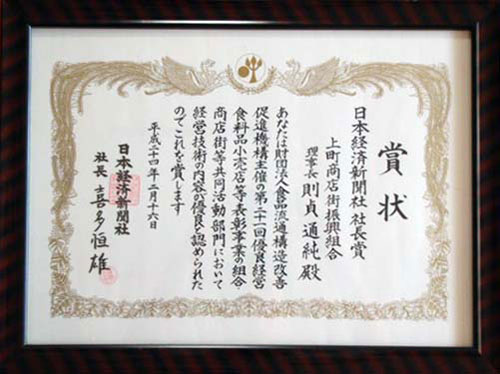 賞状
日本経済新聞社社長賞
上町商店街振興組合
理事長 則貞通純殿
あなたは財団法人食品流通構造改善
促進機構主催の第二十一回優良経営
食料品小売店等表彰事業の組合・
商店街等共同活動部門において
経営技術の内容の優良と認められた
のでこれを賞します
平成二十四年二月十六日
日本経済新聞社
社長 喜多恒雄